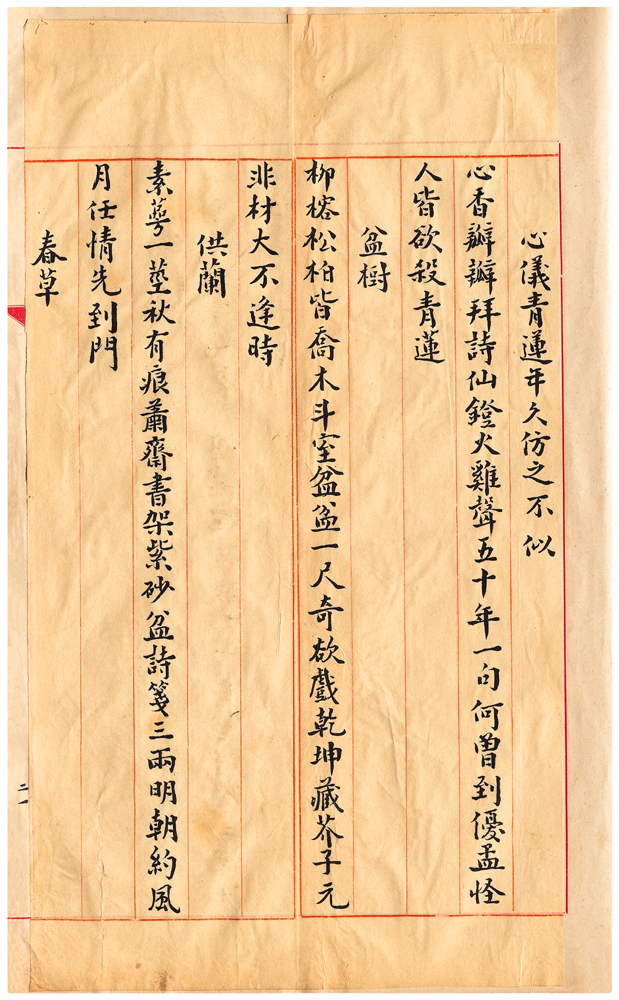 心儀青蓮年久仿之不似
心香瓣瓣拜詩仙鐙火雞聲五十年一句何曾到優孟怪
人皆欲殺青蓮
盆樹
柳榕松柏皆喬木斗室盆盆一尺奇欲戲乾坤藏芥子元
非材大不逢時
供蘭
素萼一莖秋有痕蕭齋書架紫砂盆詩箋三兩明朝約風
月任情先到門
春草
二一